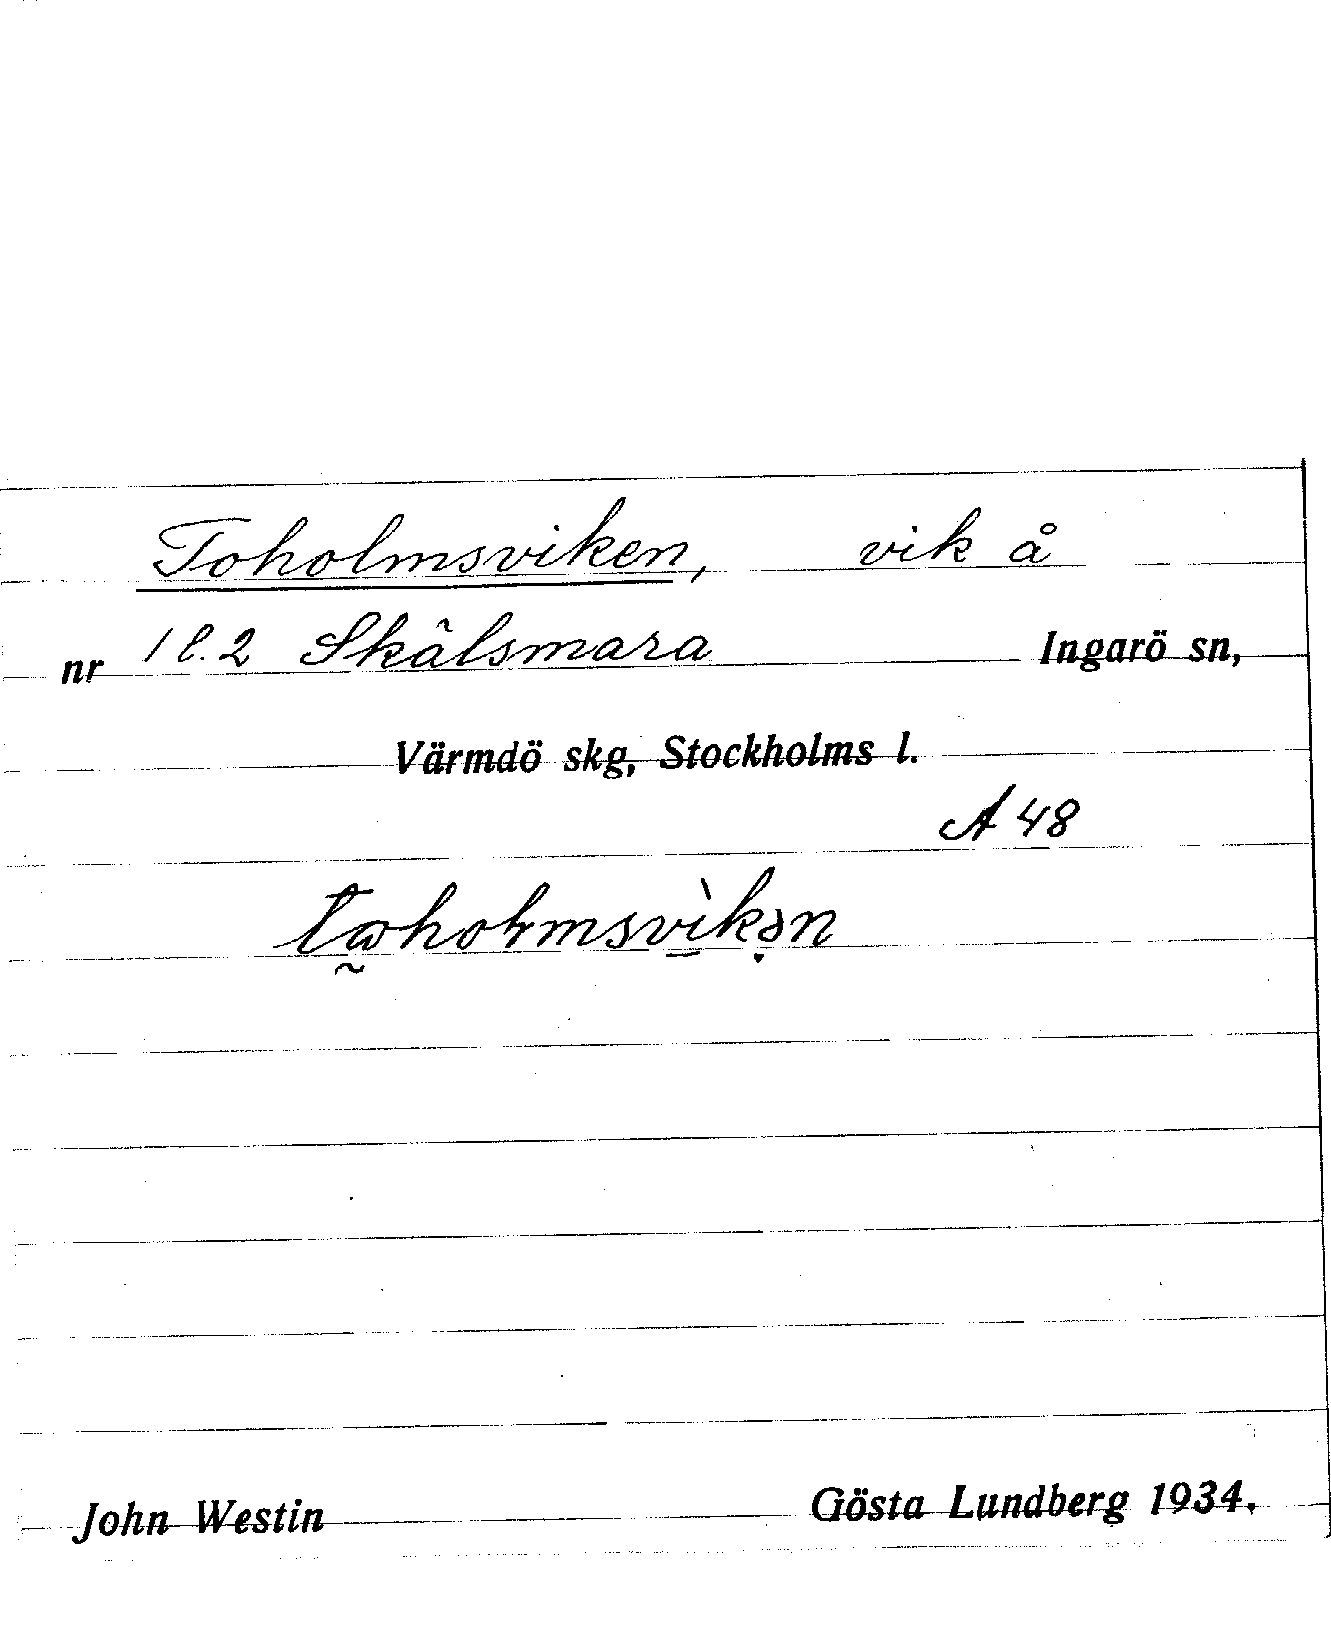 Toholmsviken, vik å
nr 1 l. 2 Skålsmara Ingarö sn,
Värmdö skg, Stockholms l.
A 48
John Westin Gösta Lundberg 1934.